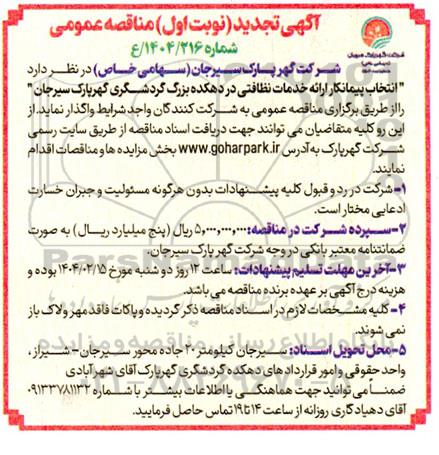 آگهی تجدید (نوبت اول) مناقصه عمومی
شماره ۱۴۰۴/۳۱۶/ع
شرکت گهر پارک سیرجان
شرکت گهر پارک سیرجان (سهامی خاص) در نظر دارد
"انتخاب پیمانکار ارائه خدمات نظافتی در دهکده بزرگ گردشگری گهرپارک سیرجان"
را از طریق برگزاری مناقصه عمومی به شرکت کنندگان واجد شرایط واگذار نماید. از
این رو کلیه متقاضیان می توانند جهت دریافت اسناد مناقصه از طریق سایت رسمی
شرکت گهرپارک به آدرس www.goharpark.ir بخش مزایده ها و مناقصات اقدام
نمایند.
۱-شرکت در رد و قبول کلیه پیشنهادات بدون هرگونه مسئولیت و جبران خسارت
ادعایی مختار است.
۲-سپرده شرکت در مناقصه: ۵,۰۰۰,۰۰۰,۰۰۰ ریال (پنج میلیارد ریال) به صورت
ضمانتنامه معتبر بانکی در وجه شرکت گهر پارک سیرجان.
۳-آخرین مهلت تسلیم پیشنهادات: ساعت ۱۲ روز دو شنبه مورخ ۱۴۰۴/۰۲/۱۵ بوده و
هزینه درج آگهی بر عهده برنده مناقصه می باشد.
۴- کلیه مشخصات لازم در اسناد مناقصه ذکر گردیده و پاکات فاقد مهر و لاک باز
نمی شوند.
۵-محل تحویل اسناد: سیرجان کیلومتر ۲۰ جاده محور سیرجان-شیراز،
واحد حقوقی و امور قراردادهای دهکده گردشگری گهرپارک آقای شهرآبادی
ضمناً می توانید جهت هماهنگی یا اطلاعات بیشتر با شماره ۰۹۱۳۳۷۸۱۱۳۲
آقای دهیادگاری روزانه از ساعت ۱۴ تا ۱۹ تماس حاصل فرمایید.